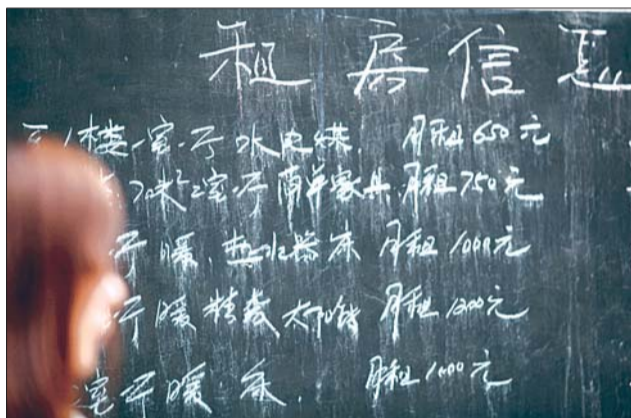 租房信息
1楼一室一厅水电煤. 月租650元
70米²2室一厅简单家具 月租750元
厅 暖、热水器床 月租1000元
厅 暖 精装 月租1200元
室一厅 暖、床. 月租1000元